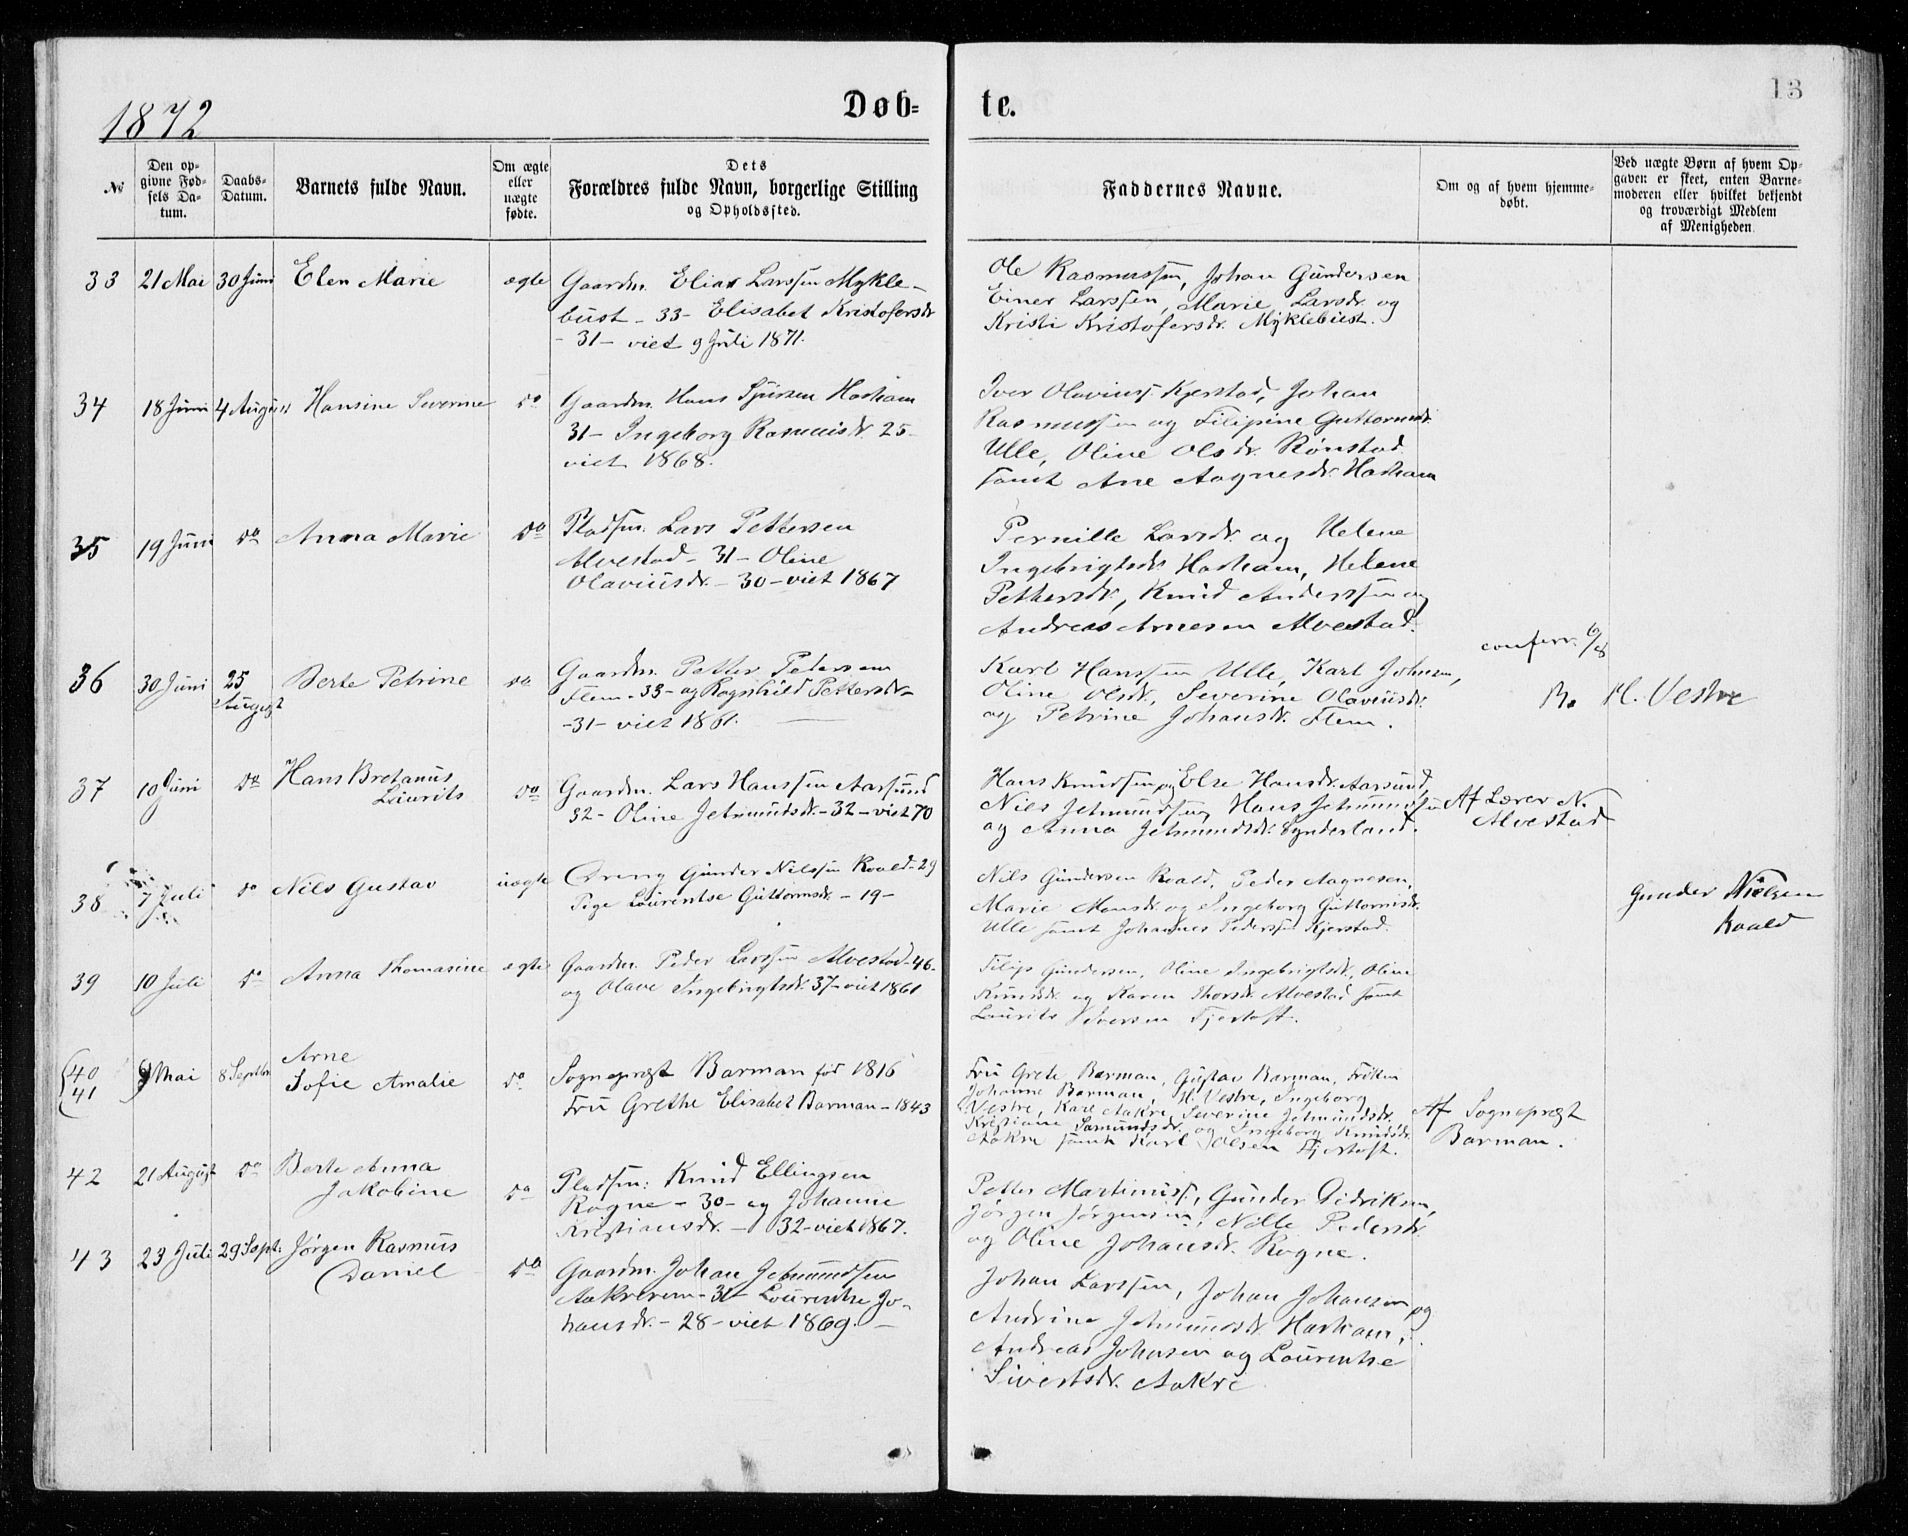 13
1872
Døb= te.
№
Den op=
givne Fød=
sels Da=
tum.
Daabs=
Datum.
Barnets fulde Navn.
Om ægte
eller
uægte
fødte.
Dets
Forældres fulde Navn, borgerlige Stilling
og Opholdssted.
Faddernes Navne.
Om og af hvem hjemme=
døbt.
Ved uægte Børn af hvem Op=
gaven er skeet, enten Barne=
moderen eller hvilket bekjendt
og troværdigt Medlem
af Menigheden.
33 21 Mai 30 Juni Elen Marie ægte
Gaardm. Elias Larssen Mykle-
bust - 33 - Elisabet Kristofersdr.
- 31 - viet 9 Juli 1871.
Ole Rasmussen, Johan Gundersen
Einer Larssen, Marie Larsdr. og
Kristi Kristofersdr. Myklebust.
34 18 Juni 4 August Hansine Severine do
Gaardm. Hans Sjursen Harham
31 - Ingeborg Rasmusdr. 25 -
viet 1868.
Iver Olaviuss. Kjerstad, Johan
Rasmussen og Filipine Guttormsdr.
Ulle, Oline Olsdr. Rønstad
samt Ane Aagnesdr. Harham
35 19 Juni do Anna Marie do
Pladsm. Lars Pettersen
Alvestad - 31 - Oline
Olaviusdr. - 30 - viet 1867
Pernille Larsdr. og Helene
Ingebrigtsdr. Harham, Helene
Pettersdr., Knud Anderssen og
Andreas Arnesen Alvestad.
36 30 Juni 25
August
Berte Petrine do
Gaardm. Petter Petersen
Flem - 33 - og Ragnhild Pettersdr. -
- 31 - viet 1861.
Karl Hanssen Ulle, Karl Johnsen,
Oline Olsdr., Severine Olaviusdr.
og Petrine Johansdr. Flem.
conferr. 6/8
H. Vestre
37 10 Juni do Hans Bretanus
Laurits
do
Gaardm. Lars Hanssen Aarsund
32 - Oline Jetmundsdr. - 32 - viet 70
Hans Knudsen og Else Hansdr. Aarsund,
Nils Jetmundsen, Hans Jetmundsen
og Anna Jetmundsdr. Synderland.
Af Lærer N.
Alvestad
38 7 Juli do Nils Gustav uægte
Dreng Gunder Nilssen Roald - 29
Pige Laurentse Guttormsdr. - 19 -
Nils Gundersen Roald, Peder Aagnesen,
Marie Monsdr. og Ingeborg Guttormsdr.
Ulle samt Johannes Pederssen Kjerstad.
Gunder Nielsen
Roald
39 10 Juli do Anna Thomasine ægte
Gaardm. Peder Larssen Alvestad - 46 -
og Olave Ingebrigtsdr. 37 - viet 1861
Filip Gundersen, Oline Ingebrigtsdr., Oline
Knudsdr. og Karen Thorsdr. Alvestad samt
Laurits Iversen Fjertoft.
40
41
9 Mai 8 Septbr
Arne
Sofie Amalie
do
Sognepræst Barman fød 1816
Fru Grethe Elisabet Barman - 1843
Fru Grete Barman, Gustav Barman, Frøken
Johanne Barman, H. Vestre, Ingeborg
Vestre, Karl Aakre, Severine Jetmundsdr.
Kristiane Samundsdr. og Ingeborg Knudsdr.
Aakre samt Karl Olsen Fjertoft.
Af Sognepræst
Barman.
42 21 August do Berte Anna
Jakobine
do
Pladsm: Knud Ellingsen
Rogne - 30 - og Johanne
Kristiansdr. - 32 - viet 1867.
Petter Martinuss., Gunder Didriksen,
Jørgen Jørgensen, Nille Pedersdr.
og Oline Johansdr. Rogne.
43 23 Juli 29 Sept. Jørgen Rasmus
Daniel
do
Gaardm. Johan Jetmundsen
Aakrerem - 31 - Laurentse Jo-
hansdr. - 28 - viet 1869. -
Johan Larssen, Johan Johansen og
Andrine Jetmundsdr. Harham,
Andreas Johnsen og Laurentse
Sivertsdr. Aakre